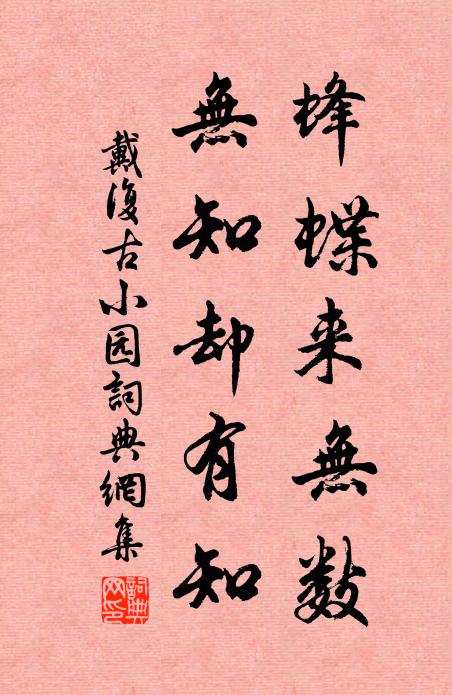 蜂蝶来無数
無知却有知
戴復古小园詞典網集
詞典网印